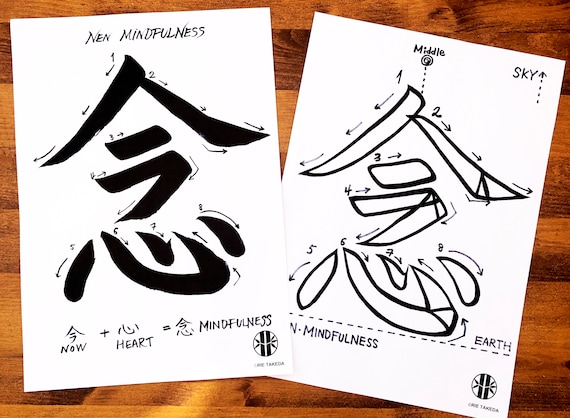 NEN MINDFULNESS
1
2
3
4
念
5
6
7
8
今 + 心 = 念 MINDFULNESS
NOW HEART
©RIE TAKEDA
Middle
SKY
1
2
3
4
念
5
6
7
8
N・MINDFULNESS
EARTH
©RIE TAKEDA